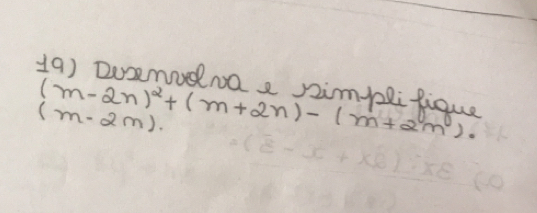 19) Desenvolva e simplifique
(m-2n)²+(m+2n)-(m+2m).
(m-2m).